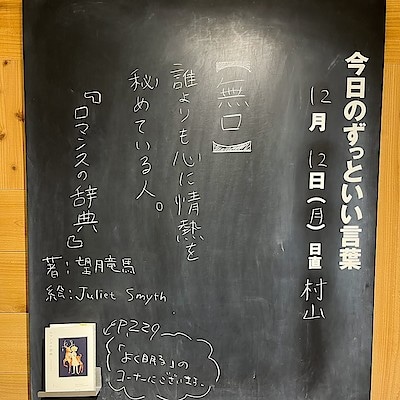 今日のずっといい言葉
12月12日(月)日直 村山
【無口】
誰よりも心に情熱を
秘めている人。
『ロマンスの辞典』
著:望月竜馬
絵:Juliet Smyth
EP.229
「よく眠る」の
コーナーにございます。